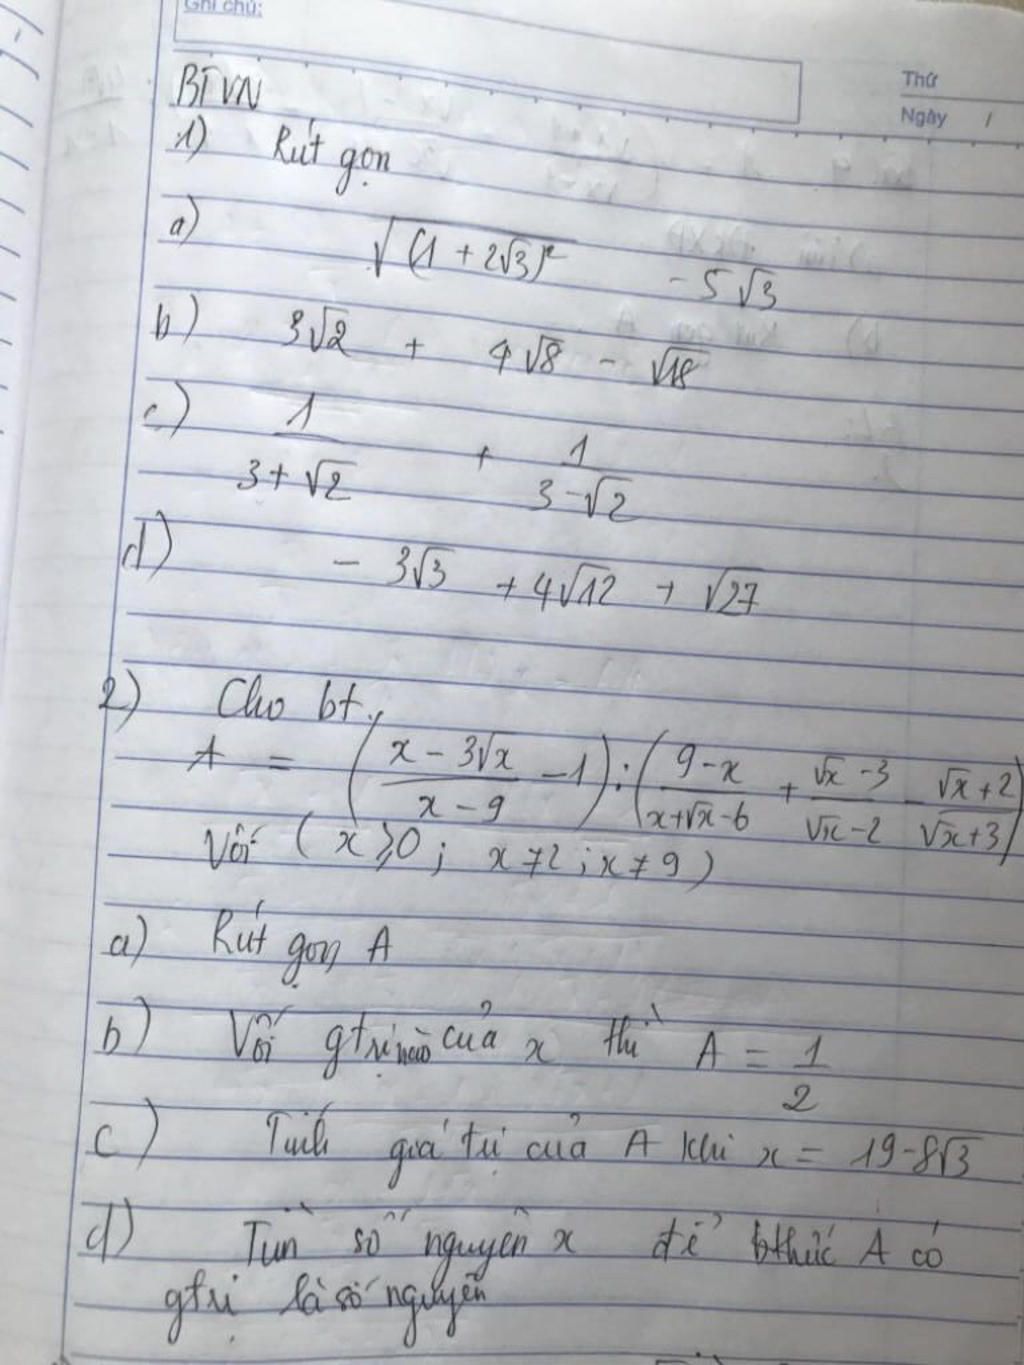 Ghi chú:
Thứ
Ngày /
BTVN
1) Rút gọn
a) √(1 + 2√3)² - 5√3
b) 3√2 + 4√8 - √18
c) 1/(3+√2) + 1/(3-√2)
d) - 3√3 + 4√12 + √27
2) Cho bt
A = ((x - 3√x)/(x - 9) - 1) : ((9-x)/(x+√x-6) + (√x-3)/(√x-2) - (√x+2)/(√x+3))
Với (x ≥ 0; x ≠ 2; x ≠ 9)
a) Rút gọn A
b) Với gtrị nào của x thì A = 1/2
c) Tính giá trị của A khi x = 19-8√3
d) Tìm số nguyên x để bthức A có
gtrị là số nguyên